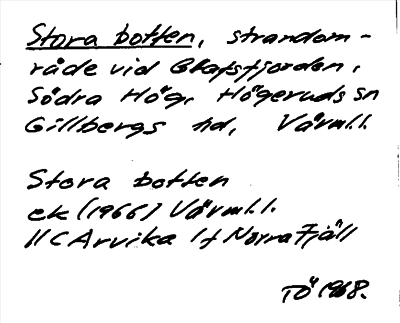 Stora botten, strandom-
råde vid Glafsfjorden,
Södra Hög, Högeruds sn
Gillbergs hd, Värml.
Stora botten
ek (1966) Värml.
11C Arvika 1f Norra Fjäll
TÖ 1968.